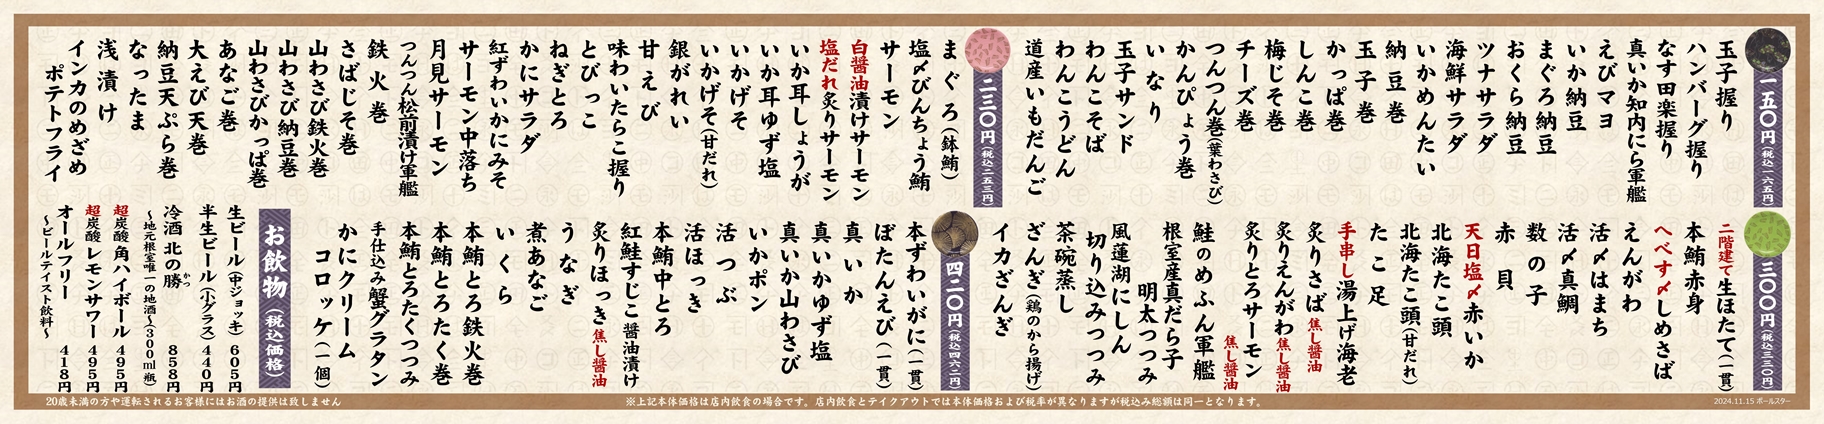 一五〇円(税込一六五円)
玉子握り
ハンバーグ握り
なす田楽握り
真いか知内にら軍艦
えびマヨ
いか納豆
まぐろ納豆
おくら納豆
ツナサラダ
海鮮サラダ
いかめんたい
納豆巻
玉子巻
かっぱ巻
しんこ巻
梅じそ巻
チーズ巻
つんつん巻(葉わさび)
かんぴょう巻
いなり
玉子サンド
わんこそば
わんこうどん
道産いもだんご
二三〇円(税込二五三円)
まぐろ(鉢鮪)
塩〆びんちょう鮪
サーモン
白醤油漬けサーモン
塩だれ炙りサーモン
いか耳しょうが
いか耳ゆず塩
いかげそ
いかげそ(甘だれ)
銀がれい
甘えび
味わいたらこ握り
とびっこ
ねぎとろ
かにサラダ
紅ずわいかにみそ
サーモン中落ち
月見サーモン
つんつん松前漬け軍艦
鉄火巻
さばじそ巻
山わさび鉄火巻
山わさび納豆巻
山わさびかっぱ巻
あなご巻
大えび天巻
納豆天ぷら巻
なったま
浅漬け
インカのめざめ
ポテトフライ
三〇〇円(税込三三〇円)
二階建て生ほたて(一貫)
本鮪赤身
へべす〆しめさば
えんがわ
活〆はまち
活〆真鯛
数の子
赤貝
天日塩〆赤いか
北海たこ頭
北海たこ頭(甘だれ)
たこ足
手串し湯上げ海老
炙りさば焦し醤油
炙りえんがわ焦し醤油
炙りとろサーモン
焦し醤油
鮭のめふん軍艦
根室産真だら子
明太つつみ
風蓮湖にしん
切り込みつつみ
茶碗蒸し
ざんぎ(鶏のから揚げ)
イカざんぎ
四二〇円(税込四六二円)
本ずわいがに(一貫)
ぼたんえび(一貫)
真いか
真いかゆず塩
真いか山わさび
いかポン
活つぶ
活ほっき
本鮪中とろ
紅鮭すじこ醤油漬け
炙りほっき焦し醤油
うなぎ
煮あなご
いくら
本鮪とろ鉄火巻
本鮪とろたく巻
本鮪とろたくつつみ
手仕込み蟹グラタン
かにクリーム
コロッケ(一個)
お飲物(税込価格)
生ビール(中ジョッキ) 605円
半生ビール(小グラス) 440円
冷酒 北の勝 858円
かつ
～地元根室唯一の地酒～(300ml瓶)
超炭酸角ハイボール 495円
超炭酸レモンサワー 495円
オールフリー 418円
～ビールテイスト飲料～
20歳未満の方や運転されるお客様にはお酒の提供は致しません
※上記本体価格は店内飲食の場合です。店内飲食とテイクアウトでは本体価格および税率が異なりますが税込み総額は同一となります。
2024.11.15 ポールスター